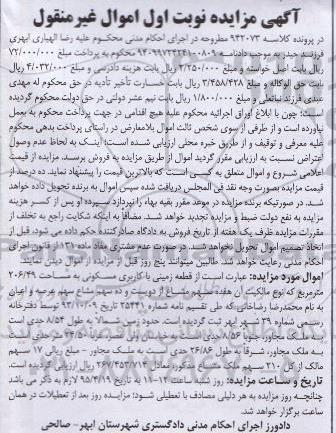 آگهی مزایده نوبت اول اموال غیر منقول
در پرونده کلاسه ۹۴۲۰۷۳ مطروحه در اجرای احکام مدنی محکوم علیه رضا الهیاری ابهری
فرزند حیدر به موجب دادنامه ۹۴۰۹۹۷۲۴۲۴۱۰۰۸۰۹ محکوم به پرداخت مبلغ ۷۲/۰۰۰/۰۰۰
ریال بابت اصل خواسته و مبلغ ۲/۲۵۰/۰۰۰ ریال بابت هزینه دادرسی و مبلغ ۴/۰۳۲/۰۰۰ ریال
بابت حق الوکاله و مبلغ ۳/۴۵۸/۴۲۸ ریال بابت خسارت تأخیر تأدیه در حق محکوم له مهدی
عبدی فرزند نباتعلی و مبلغ ۱/۸۰۰/۰۰۰ ریال بابت نیم عشر دولتی در حق دولت محکوم گردیده
است؛ چون با ابلاغ اوراق اجرائیه محکوم علیه هیچ اقدامی در جهت پرداخت محکوم به بعمل
نیاورده است و از طرفی از سوی شخص ثالث اموال بلامعارض در راستای پرداخت بدهی محکوم
علیه معرفی و توقیف و از طریق خبره محلی ارزیابی شده است؛ اینک به لحاظ عدم وصول
اعتراض نسبت به ارزیابی مقرر گردید اموال از طریق مزایده به فروش برسد. مزایده از قیمت
اعلامی شروع و اموال متعلق به کسی است که بالاترین قیمت را پیشنهاد نماید. ده درصد از
قیمت مزایده بصورت وجه نقد فی المجلس دریافت شده سپس اموال به برنده تحویل داده خواهد
شد. در صورتیکه برنده مزایده در موعد مقرر بقیه بهاء را نپردازد، سپرده او پس از کسر هزینه
مزایده به نفع دولت ضبط و مزایده تجدید خواهد شد. مضافا به اینکه شکایت راجع به تخلف از
مقررات مزایده ظرف یک هفته از تاریخ فروش به دادگاه صادرکننده حکم داده می شود، قبل از
اتخاذ تصمیم اموال تحویل نخواهد شد. در صورت عدم مشتری مفاد ماده ۱۳۱ از قانون اجرای
احکام مدنی رعایت خواهد شد. طالبین میتوانند پنج روز قبل از مزایده از اموال دیدن نمایند.
اموال مورد مزایده: عبارت است از قطعه زمینی با کاربری مسکونی به مساحت ۲۰۶/۴۹
مترمربع که نوع مالکیت آن هفده سهم مشاع از دویست و ده سهم مشاع سهم عرصه و اعیان
به نام محمدرضا رضاخانی که طی تقسیم نامه شماره ۲۵۴۴۱ تاریخ ۹۳/۱۰/۰۹ توسط دفترخانه
رسمی شماره ۳۹ شهر ابهر ثبت گردیده است. حدود زمین شمالاً به طول ۸/۵۴ حدی است
به ملک مجاور، جنوباً ۸/۵۶ حدی است به ملک مجاور، غرباً ۲۴/۵۰ حدی است
به ملک مجاور، شرقاً به طول ۲۶/۸۶ حدی است نسبت به ملک مجاور – مبلغ ریالی ۱۷ سهم
مالک از کل ۲۱۰ سهم ملک مشاع مذکور معادل ۲۶۷/۴۵۲/۸۳۴ ریال ارزیابی گردیده است.
تاریخ و ساعت مزایده: روز شنبه ساعت ۱۲-۱۱ به تاریخ ۹۵/۴/۱۹ لازم به ذکر می باشد
چنانچه روز مزایده به هر دلیلی مصادف با تعطیلی شود؛ مزایده روز بعد از تعطیلات در همان
ساعت برگزار خواهد شد.
دادورز اجرای احکام مدنی دادگستری شهرستان ابهر- صالحی